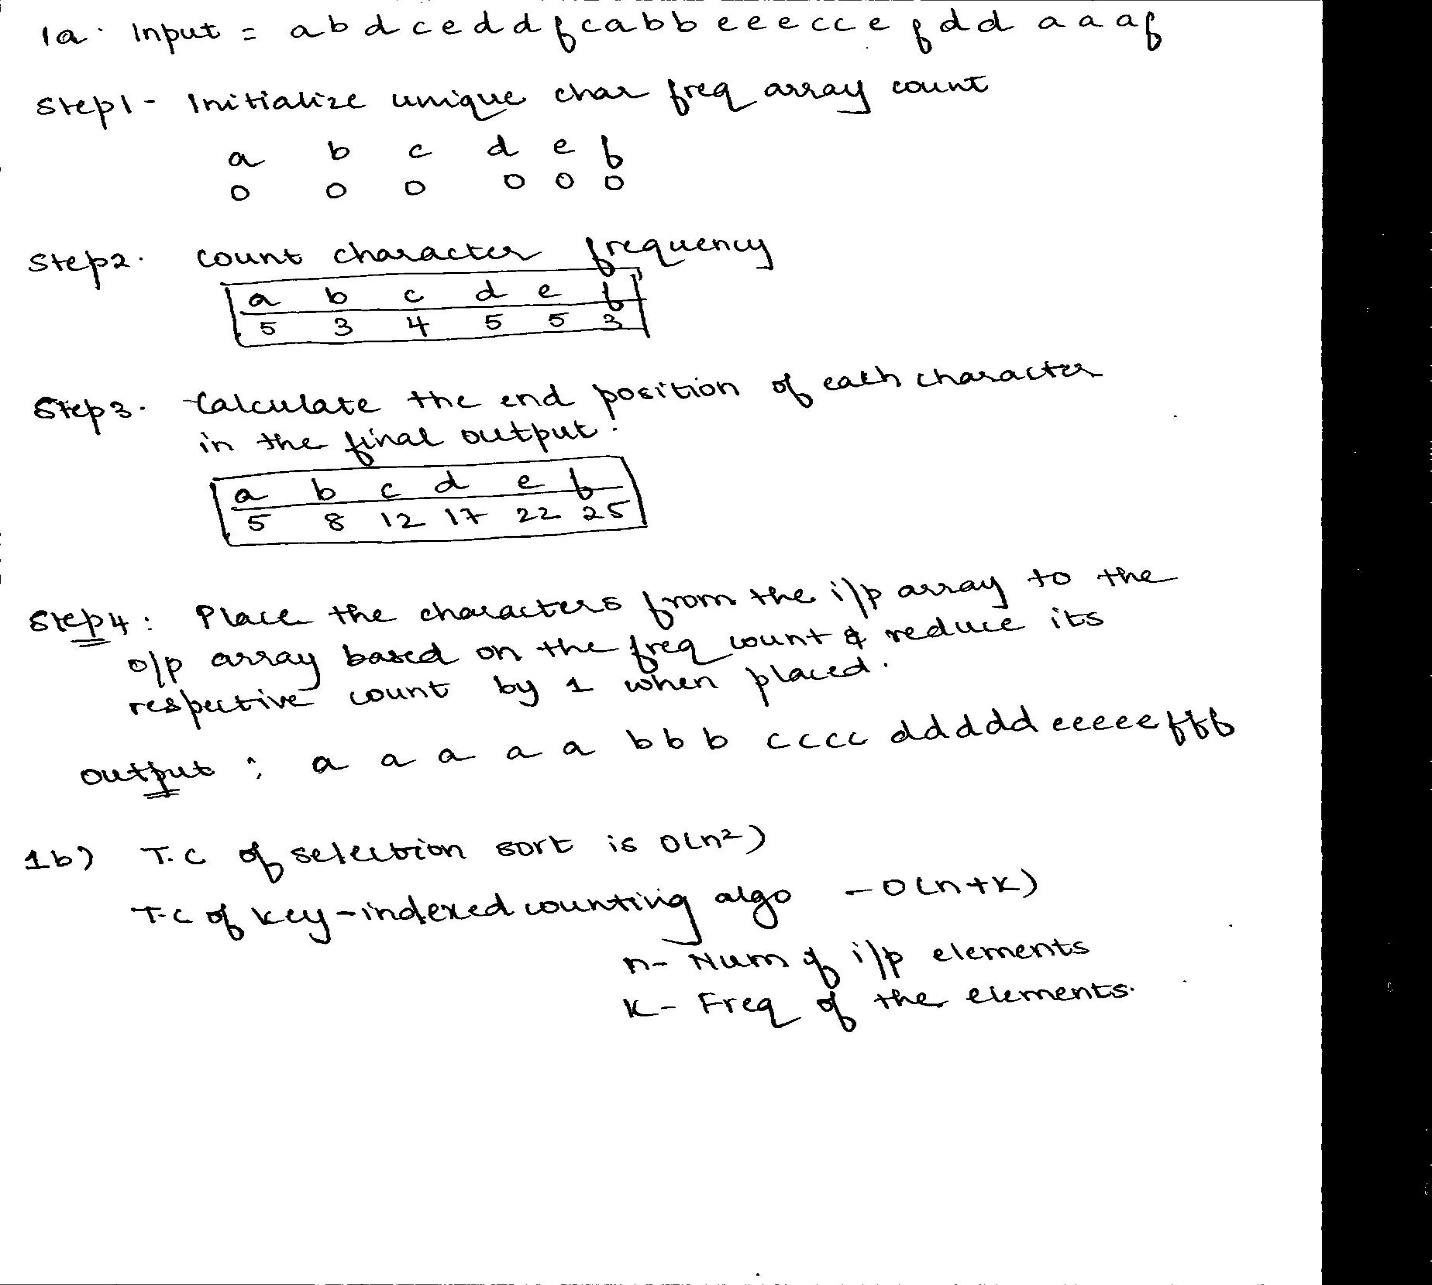 1a. Input = a b d c e d d f c a b b e e e c c e f d d a a a f
Step1 - Initialize unique char freq array count
a b c d e f
0 0 0 0 0 0
Step2. count character frequency
a b c d e f
5 3 4 5 5 3
Step3. Calculate the end position of each character
in the final output:
a b c d e f
5 8 12 17 22 25
Step4: Place the characters from the i/p array to the
o/p array based on the freq count & reduce its
respective count by 1 when placed.
output : a a a a a b b b c c c c d d d d d e e e e e f f f
1b) T.C of selection sort is O(n²)
T.C of key-indexed counting algo - O(n+k)
n- Num of i/p elements
K- Freq of the elements.